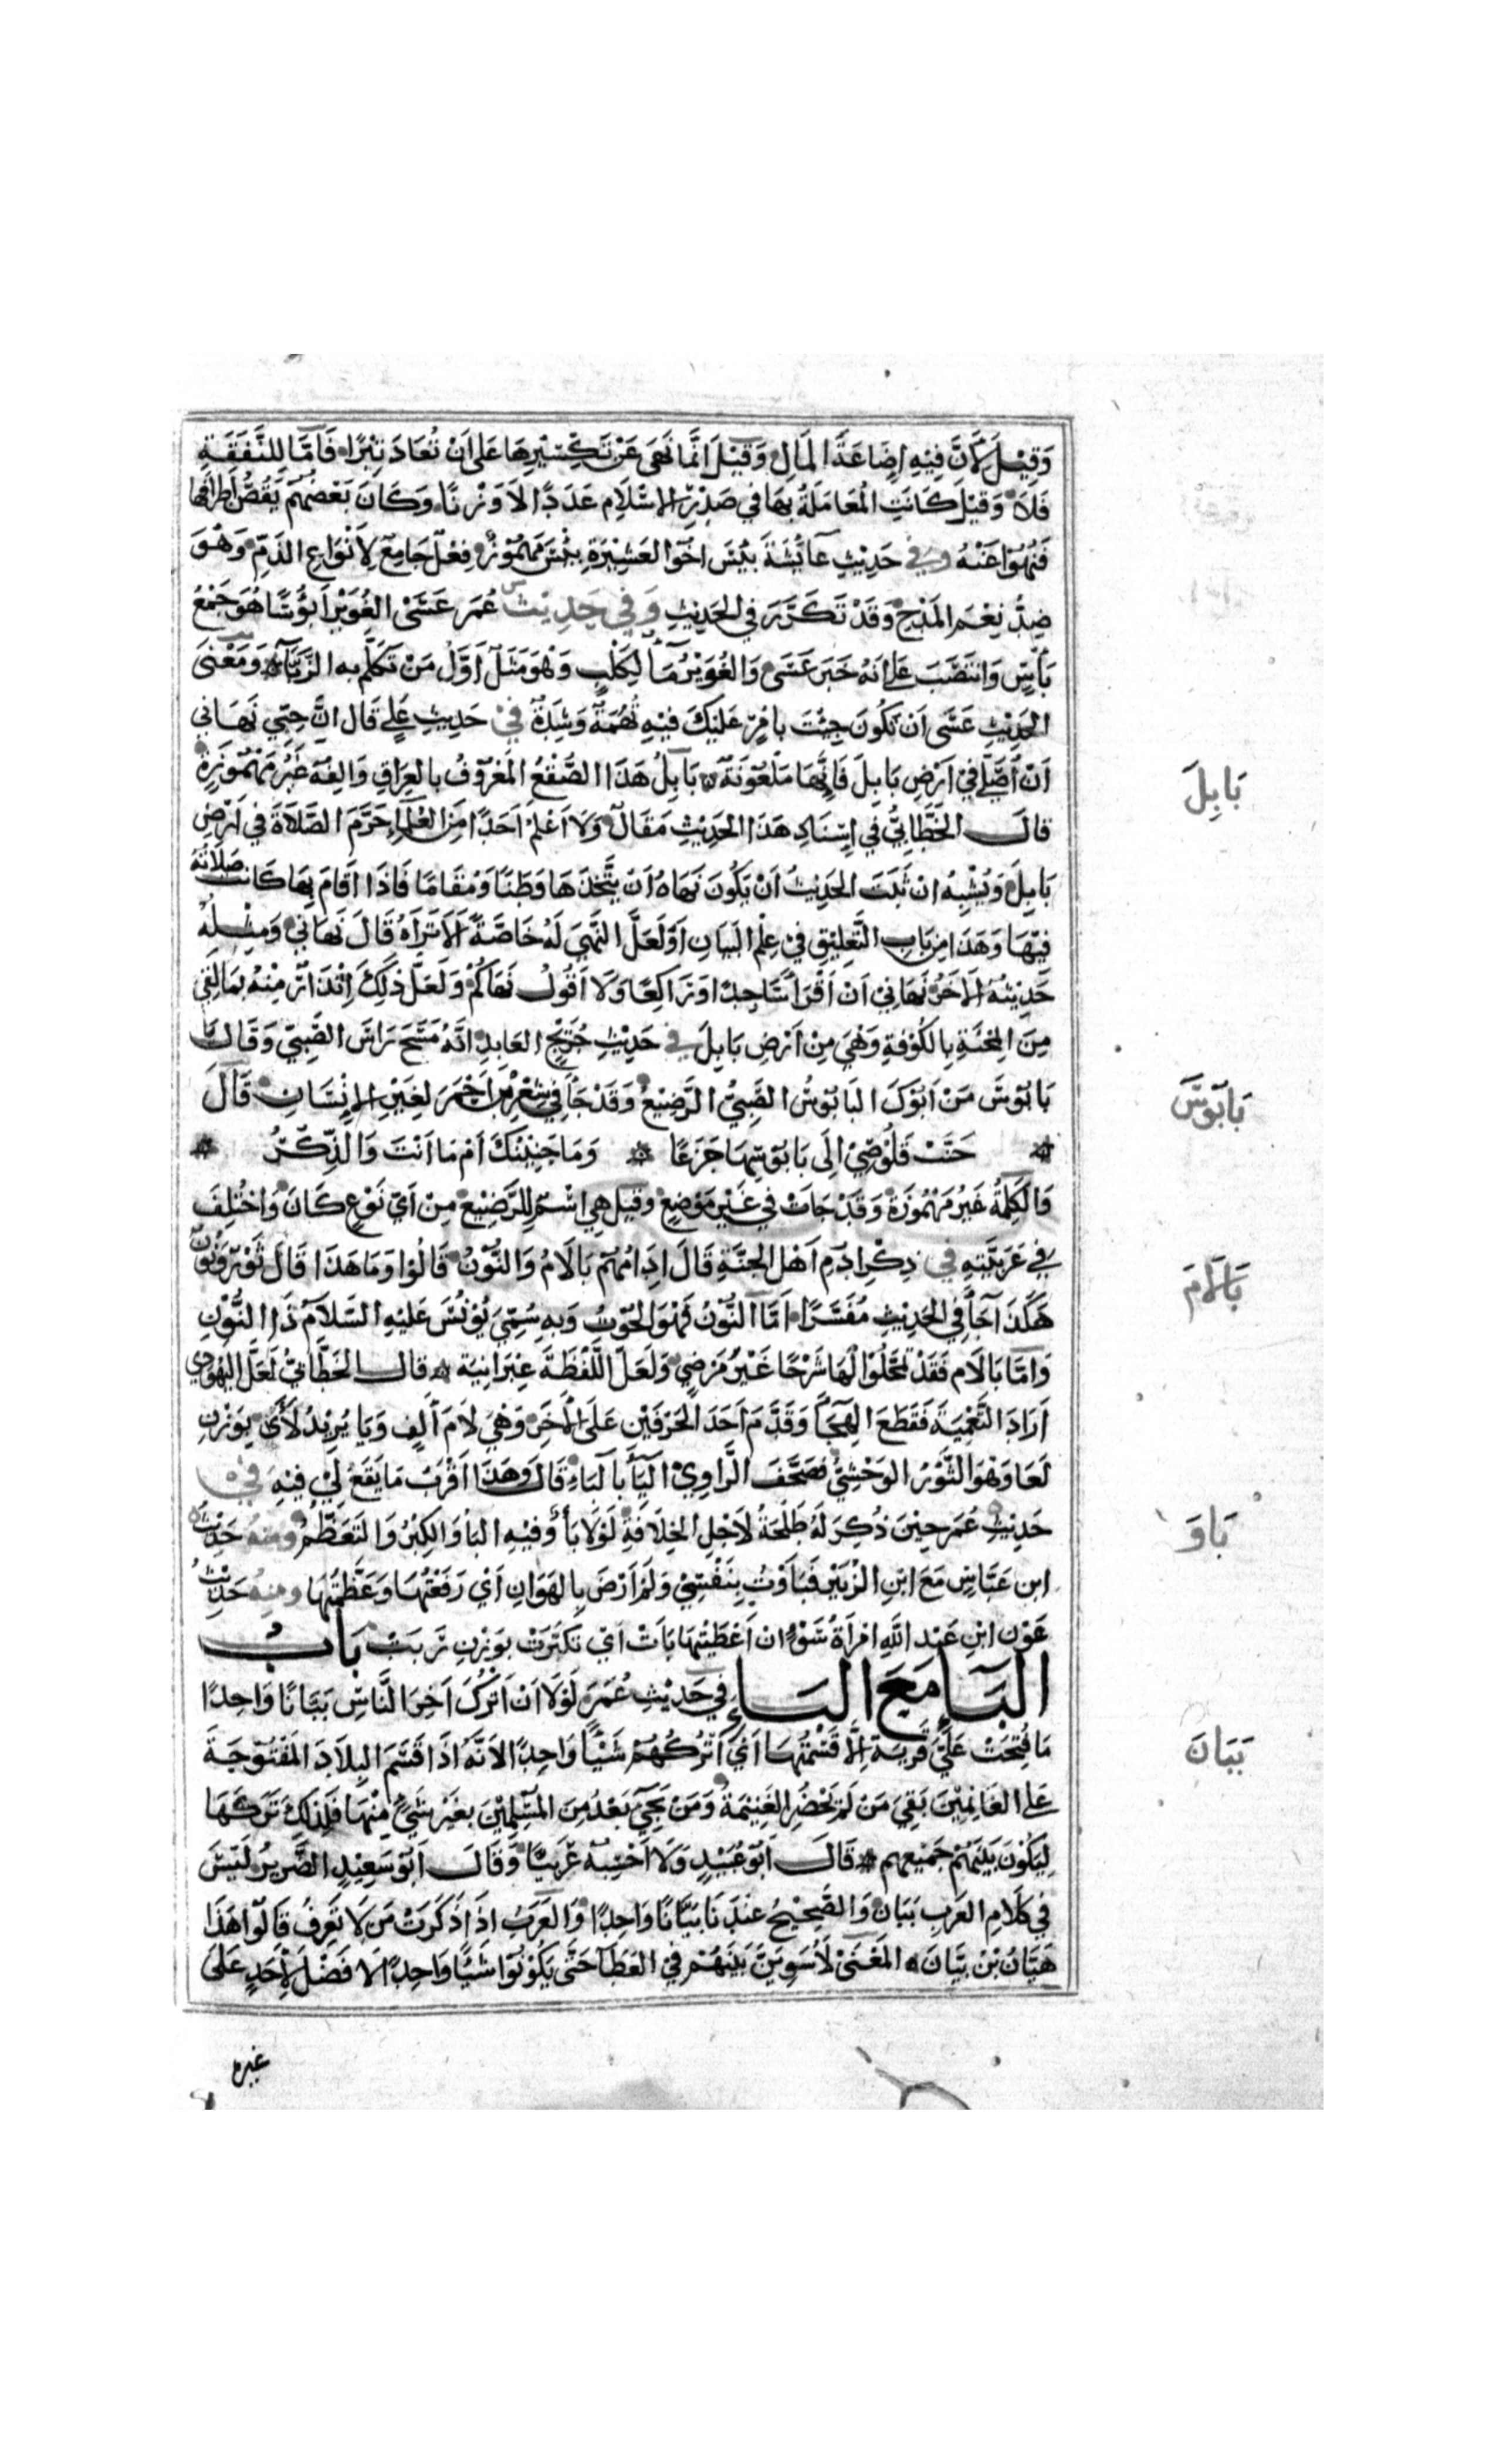 وَقِيْلَ لِاَنَّ فِيْهِ اِضَاعَةَ الْمَالِ وَقِيْلَ اِنَّمَا نَهَى عَنْ تَكْسِيْرِهَا عَلَى اَنْ تُعَادَ تِبْرًا فَاَمَّا لِلنَّفَقَةِ
فَلَا وَقِيْلَ كَانَتِ الْمُعَامَلَةُ بِهَا فِي صَدْرِ الْاِسْلَامِ عَدَدًا لَا وَزْنًا وَكَانَ بَعْضُهُمْ يَقُصُّ اَطْرَافَهَا
فَنُهُوْا عَنْهُ وفي حَدِيْثِ عَائِشَةَ بِئْسَ اَخُو الْعَشِيْرَةِ بِئْسَ مَهْمُوْزٌ فِعْلٌ جَامِعٌ لِاَنْوَاعِ الذَّمِّ وَهُوَ
ضِدُّ نِعْمَ الْمَدْحِ وَقَدْ تَكَرَّرَ فِي الْحَدِيْثِ وَفِي حَدِيْثِ عُمَرَ عَسَى الْغُوَيْرُ اَبْؤُسًا هُوَ جَمْعُ
بَاْسٍ وَانْتَصَبَ عَلَى اَنَّهُ خَبَرُ عَسَى وَالْغُوَيْرُ مَاءٌ لِكَلْبٍ وَهُوَ مَثَلٌ اَوَّلُ مَنْ تَكَلَّمَ بِهِ الزَّبَّاءُ وَمَعْنَى
الْحَدِيْثِ عَسَى اَنْ تَكُوْنَ جِئْتَ بِاَمْرٍ عَلَيْكَ فِيْهِ تُهْمَةٌ وَشِدَّةٌ فِيْ حَدِيْثِ عَلِيٍّ قَالَ اِنَّ حِبِّي نَهَانِي
اَنْ اُصَلِّيَ فِيْ اَرْضِ بَابِلَ فَاِنَّهَا مَلْعُوْنَةٌ بَابِلُ هَذَا الصُّقْعُ الْمَعْرُوْفُ بِالْعِرَاقِ وَاَلِفُهُ غَيْرُ مَهْمُوْزَةٍ
قَالَ الْخَطَّابِيُّ فِي اِسْنَادِ هَذَا الْحَدِيْثِ مَقَالٌ وَلَا اَعْلَمُ اَحَدًا مِنَ الْعُلَمَاءِ حَرَّمَ الصَّلَاةَ فِي اَرْضِ
بَابِلَ وَيُشْبِهُ اِنْ ثَبَتَ الْحَدِيْثُ اَنْ يَكُوْنَ نَهَاهُ اَنْ يَتَّخِذَهَا وَطَنًا وَمُقَامًا فَاِذَا اَقَامَ بِهَا كَانَتْ صَلَاتُهُ
فِيْهَا وَهَذَا مِنْ بَابِ التَّعْلِيْقِ فِيْ عِلْمِ الْبَيَانِ اَوْ لَعَلَّ النَّهْيَ لَهُ خَاصَّةً اَلَا تَرَاهُ قَالَ نَهَانِي وَمِثْلُهُ
حَدِيْثُهُ الْاَخَرُ نَهَانِيْ اَنْ اَقْرَاَ سَاجِدًا اَوْ رَاكِعًا وَلَا اَقُوْلُ نَهَاكُمْ وَلَعَلَّ ذَلِكَ اِنْذَارٌ مِنْهُ بِمَا لَقِيَ
مِنَ الْمِحْنَةِ بِالْكُوْفَةِ وَهِيَ مِنْ اَرْضِ بَابِلَ في حَدِيْثِ جُرَيْجٍ الْعَابِدِ اَنَّهُ مَسَحَ رَاْسَ الصَّبِيِّ وَقَالَ يَا
بَابُوْسُ مَنْ اَبُوْكَ الْبَابُوْسُ الصَّبِيُّ الرَّضِيْعُ وَقَدْ جَاءَ فِيْ شِعْرِ ابْنِ اَحْمَرَ لِغَيْرِ الْاِنْسَانِ قَالَ
حَنَّتْ قَلُوْصِيْ اِلَى بَابُوْسِهَا جَزَعًا وَمَا حَنِيْنُكَ اَمْ مَا اَنْتَ وَالذِّكَرُ
وَالْكَلِمَةُ غَيْرُ مَهْمُوْزَةٍ وَقَدْ جَاءَتْ فِي غَيْرِ مَوْضِعٍ وَقِيْلَ هِيَ اسْمٌ لِلرَّضِيْعِ مِنْ اَيِّ نَوْعٍ كَانَ وَاخْتُلِفَ
فِيْ عَرَبِيَّتِهِ في ذِكْرِ اُدْمِ اَهْلِ الْجَنَّةِ قَالَ اِدَامُهُمْ بَالَامُ وَالنُّوْنُ قَالُوْا وَمَا هَذَا قَالَ ثَوْرٌ وَنُوْنٌ
هَكَذَا جَاءَ فِي الْحَدِيْثِ مُفَسَّرًا اَمَّا النُّوْنُ فَهُوَ الْحُوْتُ وَبِهِ سُمِّيَ يُوْنُسُ عَلَيْهِ السَّلَامُ ذَا النُّوْنِ
وَاَمَّا بَالَام فَقَدْ تَمَحَّلُوْا لَهَا شَرْحًا غَيْرَ مَرْضِيٍّ وَلَعَلَّ اللَّفْظَةَ عِبْرَانِيَةٌ قَالَ الْخَطَّابِيُّ لَعَلَّ الْيَهُوْدِي
اَرَادَ التَّعْمِيَةَ فَقَطَعَ الْهِجَاءَ وَقَدَّمَ اَحَدَ الْحَرْفَيْنِ عَلَى الْاَخَرِ وَهِيَ لَامُ اَلِفٍ وَيَا يُرِيْدُ لَأَى بِوَزْنِ
لَعَا وَهُوَ الثَّوْرُ الْوَحْشِيُّ فَصَحَّفَ الرَّاوِيْ الْيَاءَ بِالْبَاءِ قَالَ وَهَذَا اَقْرَبُ مَا يَقَعُ لِيْ فِيْهِ في
حَدِيْثِ عُمَرَ حِيْنَ ذُكِرَ لَهُ طَلْحَةُ لِاَجْلِ الْخِلَافَةِ لَوْلَا بَأْوٌ فِيْهِ الْبَأْوُ الْكِبْرُ وَالتَّعَظُّمُ ومنه حَدِيْثُ
ابن عَبَّاسٍ مَعَ ابْنِ الزُّبَيْرِ فَبَأَوْتُ بِنَفْسِيْ وَلَمْ اَرْضَ بِالْهَوَانِ اَيْ رَفَعْتُهَا وَعَظَّمْتُهَا ومنه حَدِيْثُ
عَوْنِ ابْنِ عَبْدِ اللهِ امْرَاَةُ سَوْءٍ اِنْ اَعْطَيْتَهَا بَاَتْ اَيْ تَكَبَّرَتْ بِوَزْنِ رَبَتْ بَابُ
الْبَاءِ مَعَ الْبَاءِ فِي حَدِيْثِ عُمَرَ لَوْلَا اَنْ اَتْرُكَ اٰخِرَ النَّاسِ بَبَّانًا وَاحِدًا
مَا فُتِحَتْ عَلَيَّ قَرْيَةٌ اِلَّا قَسَمْتُهَا اَيْ اَتْرُكُهُمْ شَيْئًا وَاحِدًا لِاَنَّهُ اِذَا قَسَمَ الْبِلَادَ الْمَفْتُوْحَةَ
عَلَى الْغَانِمِيْنَ بَقِيَ مَنْ لَمْ يَحْضُرِ الْغَنِيْمَةَ وَمَنْ يَجِيْءُ بَعْدُ مِنَ الْمُسْلِمِيْنَ بِغَيْرِ شَيْءٍ مِنْهَا فَلِذَلِكَ تَرَكَهَا
لِيَكُوْنَ بَيْنَهُمْ جَمِيْعِهِمْ قَالَ اَبُوْ عُبَيْدٍ وَلَا اَحْسِبُهُ عَرَبِيًّا وَقَالَ اَبُوْ سَعِيْدٍ الضَّرِيْرُ لَيْسَ
فِيْ كَلَامِ الْعَرَبِ بَبَّانٌ وَالصَّحِيْحُ عِنْدَنَا بَيَّانًا وَاحِدًا وَالْعَرَبُ اِذَا ذَكَرَتْ مَنْ لَا تَعْرِفُ قَالُوْا هَذَا
هَيَّانُ بْنُ بَيَّانَ الْمَعْنَى لَاُسَوِّيَنَّ بَيْنَهُمْ فِي الْعَطَاءِ حَتَّى يَكُوْنُوْا شَيْئًا وَاحِدًا لَا فَضْلَ لِاَحَدٍ عَلَى
غيره
بَابِلَ
بَابُوْسَ
بَالَامَ
بَاوَ
بَبَانَ